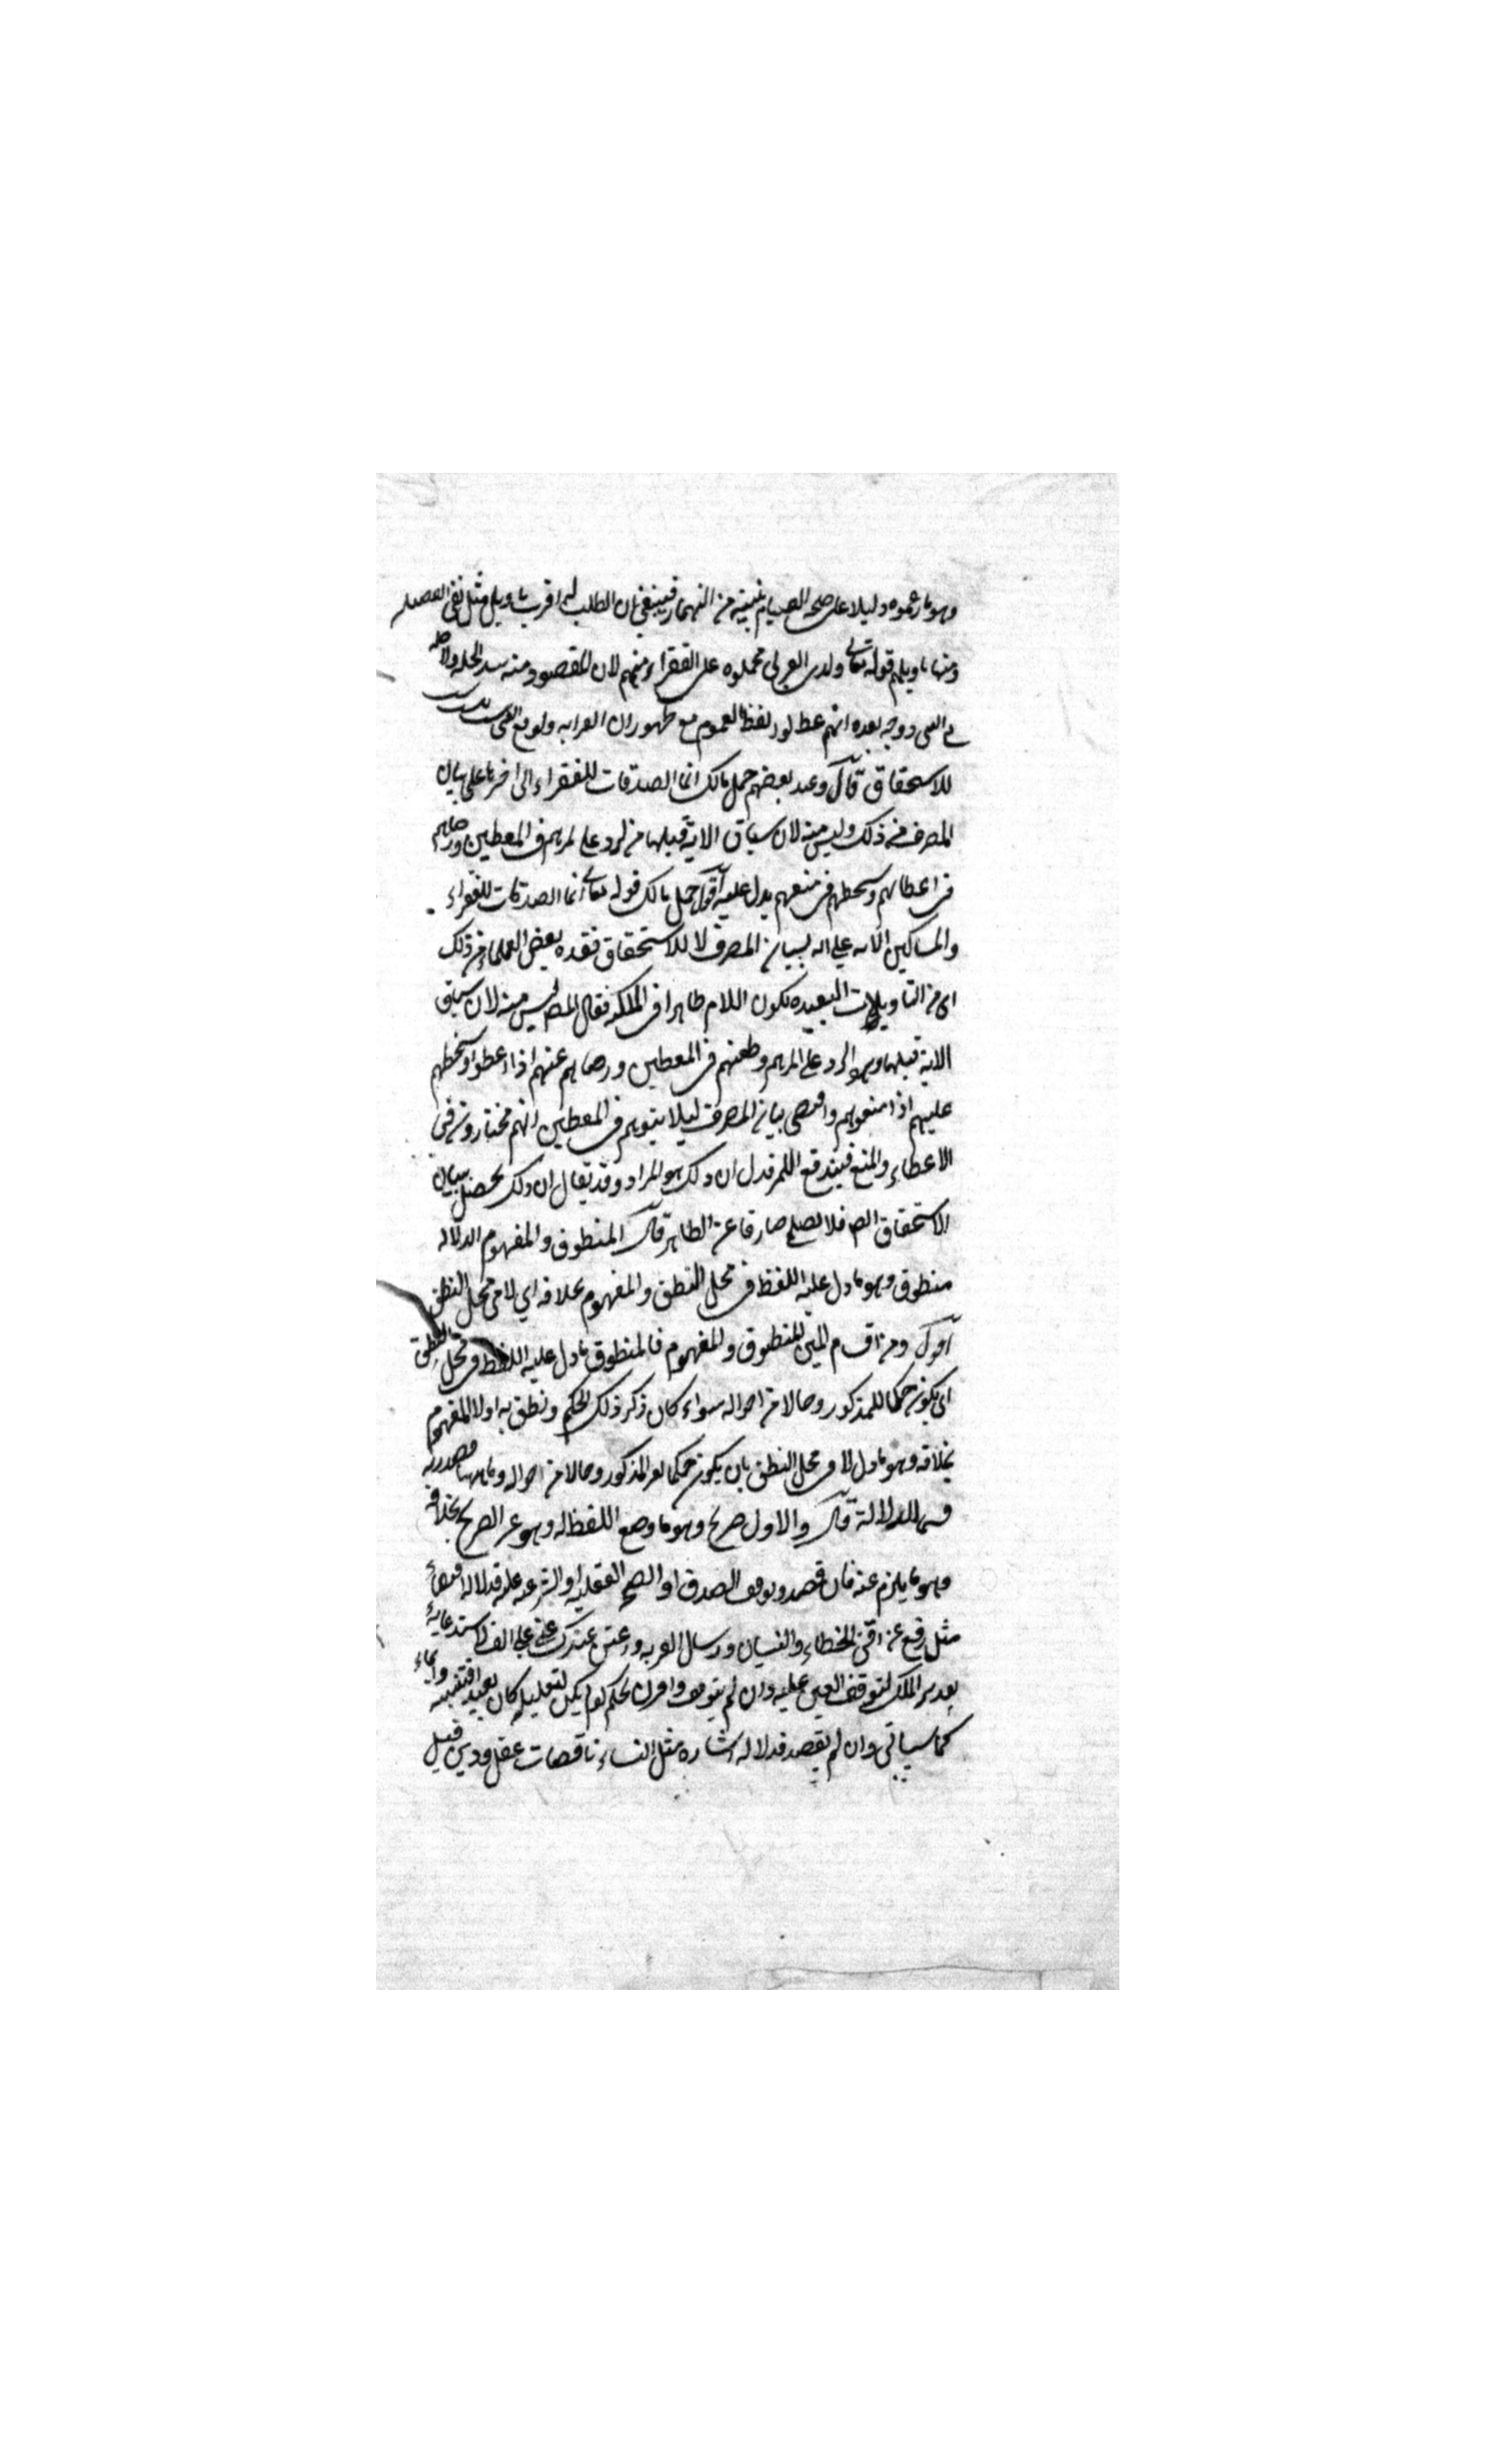 وهو ما زعموه دليلا على صحة الصيام بنيته من النهار فينبغي ان الطلب له اقرب تاويل مثل نفي الفضيله
ومنها تاويلهم قوله تعالى ولدى القربى محملوه على الفقراء منهم لان المقصود منه سد الخله ولا خله
مع الغنى ووجه بعده انهم عطلوا لفظ العموم مع ظهور ان القرابه ولو مع الغنى سبب
للاستحقاق قال وعد بعضهم حمل مالك انما الصدقات للفقراء الى اخرها على بيان
المصرف من ذلك وليس منه لان سياق الاية قبلها من الرد على لمزهم في المعطين ورضاهم
في اعطائهم وسخطهم في منعهم يدل عليه اقول حمل مالك قوله تعالى انما الصدقات للفقراء
والمساكين الايه على انه لبيان المصرف لا للاستحقاق فعده بعض العلماء من ذلك
اى من التاويلات البعيده لكون اللام ظاهرا في الملك فقال المص ليس منه لان سياق
الاية قبلها وهو الرد على لمزهم وطعنهم في المعطين ورضاهم عنهم اذا اعطوا وسخطهم
عليهم اذا منعوهم واقتضى بيان المصرف ليلا يتوهم في المعطين انهم مختارون في
الاعطاء والمنع فيندفع اللمز فدل ان ذلك هو المراد وقد يقال ان ذلك يحصل ببيان
الاستحقاق ايضا فلا يصلح صارفا عن الظاهر قال المنطوق والمفهوم الدلاله
منطوق وهو ما دل عليه اللفظ في محل النطق والمفهوم بخلافه اي لا في محل النطق
اقول ومن اقسام المتن المنطوق والمفهوم فالمنطوق ما دل عليه اللفظ في محل النطق
اى يكون حكما للمذكور وحالا من احواله سواء كان ذكر ذلك الحكم ونطق به اولا والمفهوم
بخلافه وهو ما دل لا في محل النطق بان يكون حكما لغير المذكور وحالا من احواله وما ههنا مصدريه
قسما للدلالة قال والاول صريح وهو ما وضع اللفظ له وهو غير الصريح بخلافه
وهو ما يلزم عنه فان قصد وتوقف الصدق او الصحه العقليه او الشرعيه عليه فدلاله اقتضاء
مثل رفع عن امتى الخطاء والنسيان وسال القريه واعتق عبدك عنى على الف لاستدعايه
تقدير الملك لتوقف العتق عليه وان لم يتوقف واقترن بحكم لو لم يكن لتعليله كان بعيدا فتنبيه وايماء
كما سياتى وان لم يقصد فدلاله اشاره مثل النساء ناقصات عقل ودين قيل